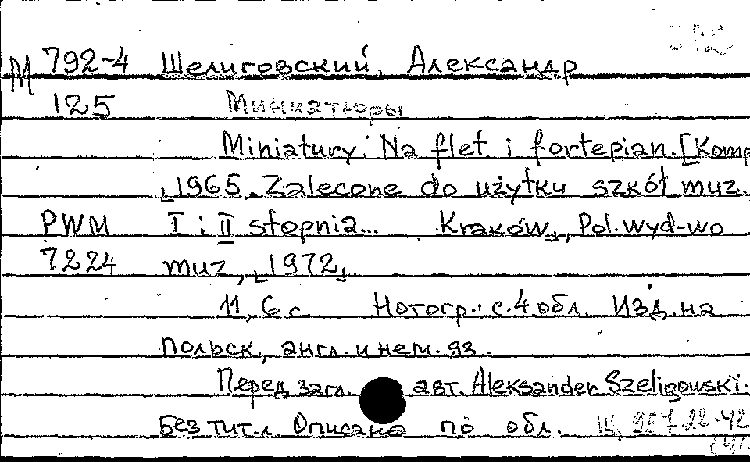 М 792-4 Шелиговский, Александр
125 Миниатюры
Miniatury. Na flet i fortepian. [Komp.
1965. Zalecone do użytku szkół muz.
PWM I i II stopnia... Kraków, Pol. wyd-wo
7224 muz, 1972
11, 6 с Нотогр.: с. 4 обл. Изд. на
польск., англ. и нем. яз.
Перед загл. авт. Aleksander Szeligowski.
Без тит. л. Описано по обл.